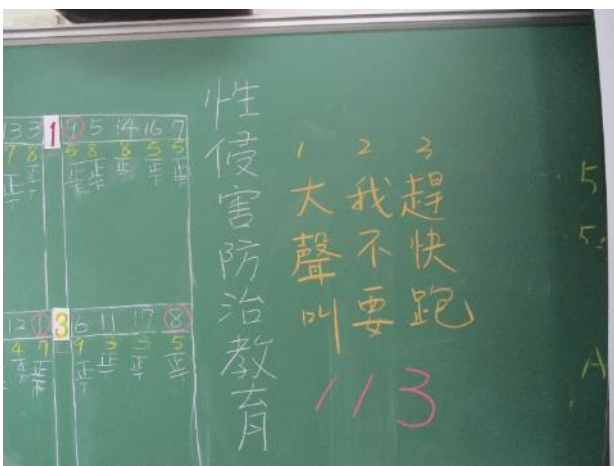 性侵害防治教育
1 大聲叫
2 我不要
3 趕快跑
113
13 3 1 9 5 14 16 7
7 8 5 8 8 5 5
12 1 3 6 11 17 8
4 9 9 3 3 5
5
5
A